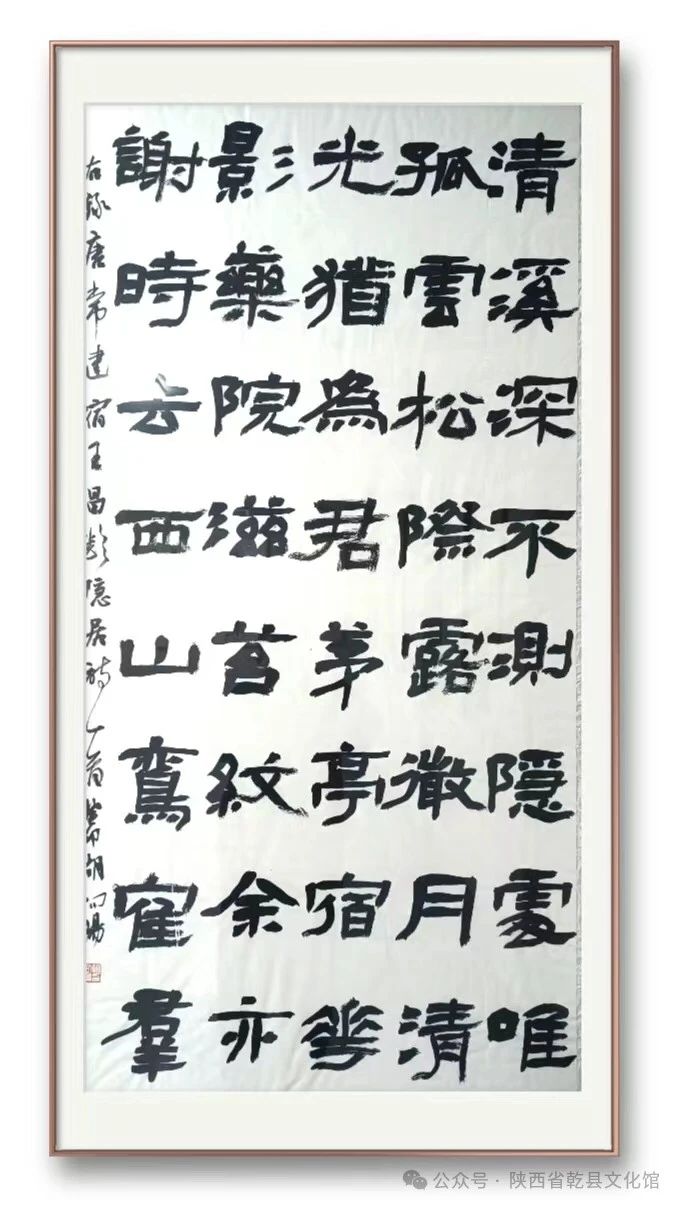 清溪深不測隱處唯
孤雲松際露微月清
光猶為君茅亭宿華
影藥院滋苔紋余亦
謝時去西山鸞寉羣
右録唐常建宿王昌齡隱居詩一首
公众号·陕西省乾县文化馆